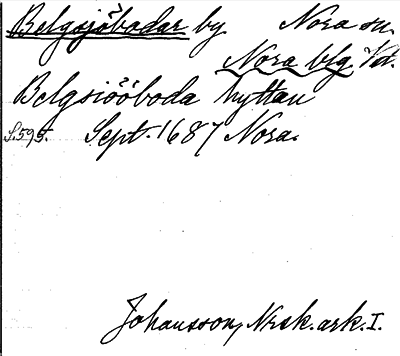 Belgsjöbodar by. Nora sn.
Nora blg Vd.
Belgsiööboda hyttan
S.595. Sept. 1687 Nora.
Johansson, Nrsk. ark. I.